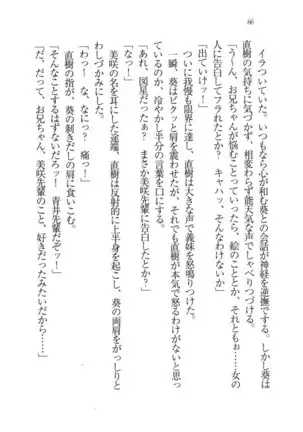 66
イラついていた。いつもなら心が和む葵との会話が神経を逆撫でする。しかし葵は
直樹の気持ちに気づかず、相変わらず能天気な声でしゃべりつづける。
「う〜ん、お兄ちゃんが悩むことっていったら、絵のこととか、それともぉ……女の
人に告白してフラれたとか？　キャハッ、そんなわけないか」
「出ていけッ！」
我慢もついに限界に達し、直樹は大きな声で義妹を怒鳴りつけた。
一瞬、葵はビクッと肩を震わせたが、それでも直樹が本気で怒るわけがないと思っ
ているのか、冷やかし半分の言葉を口にする。
「あれ、図星だった？　まさか美咲先輩に告白したとか？」
「なっ！」
美咲の名を耳にした途端、直樹は反射的に上半身を起こし、葵の両肩をがっしりと
わしづかみにした。
「わっ！　な、なにっ？　痛っ！」
直樹の指が、葵の剝きだしの肩に食いこむ。
「そんなことするはずないだろ！　青井先輩だぞッ！」
「だ、だって、お兄ちゃん、美咲先輩のこと、好きだったみたいだから……」